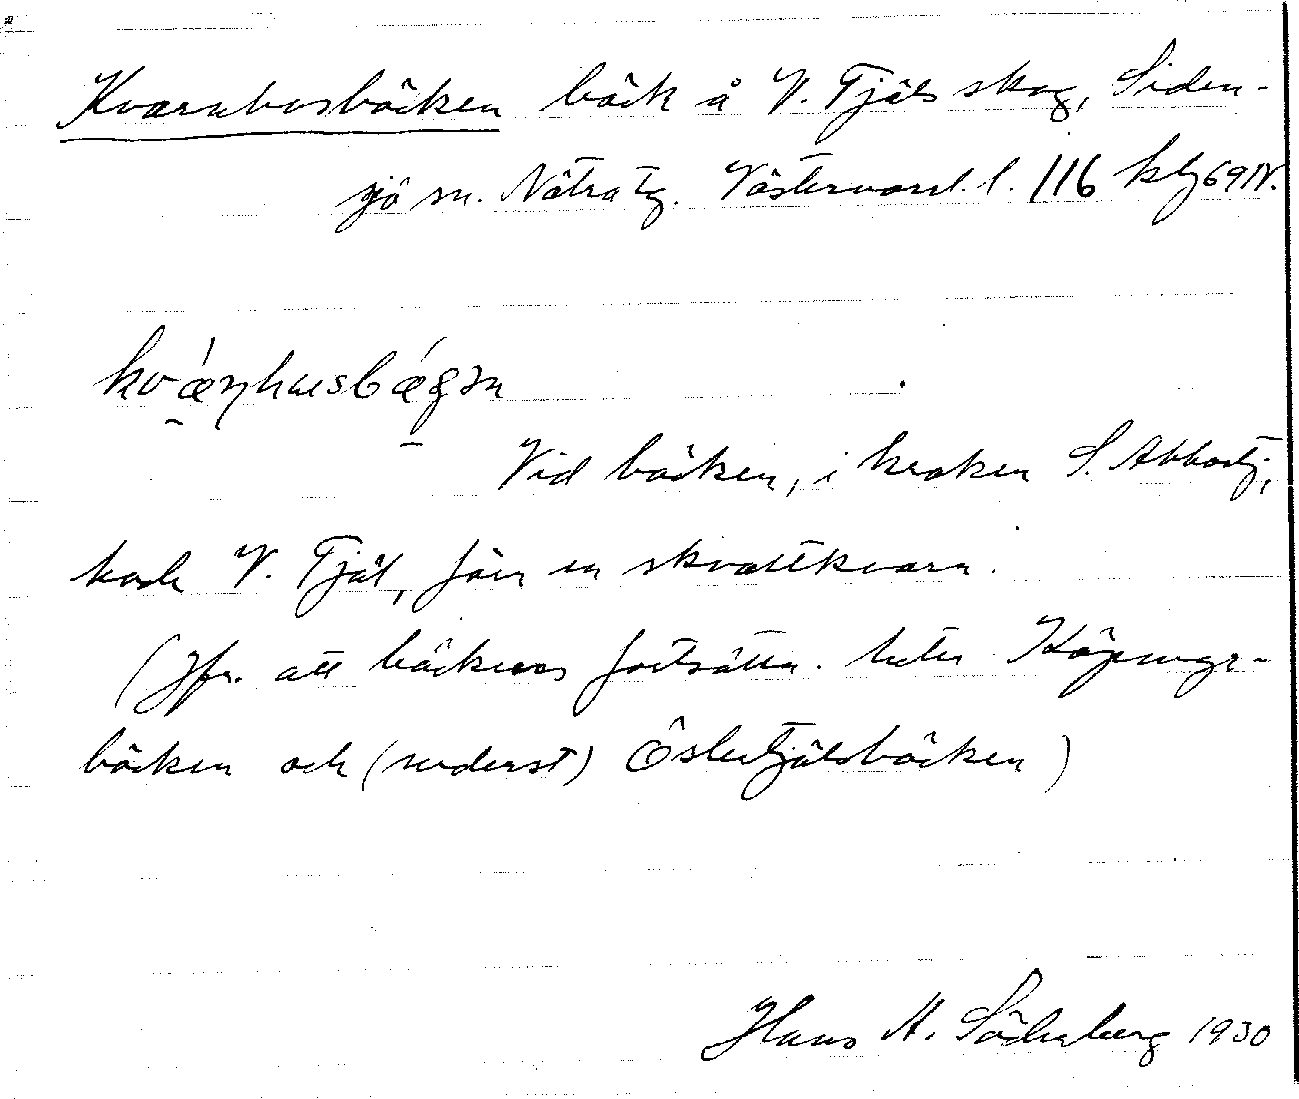 Kvarnhusbäcken bäck å V. Tjäls skog, Siden-
sjö sn. Nätra tg. Västernorrl. l. 116 kbj 69 IV.
kvǽn̥husbǽgɜn
Vid bäcken, i kroken S. Abbortj,
hade V. Tjäl, förr en skvaltkvarn.
(Jfr. att bäckens fortsättn. heter Köpings-
bäcken och (nederst) Östertjälsbäcken)
Hans A. Söderberg 1930